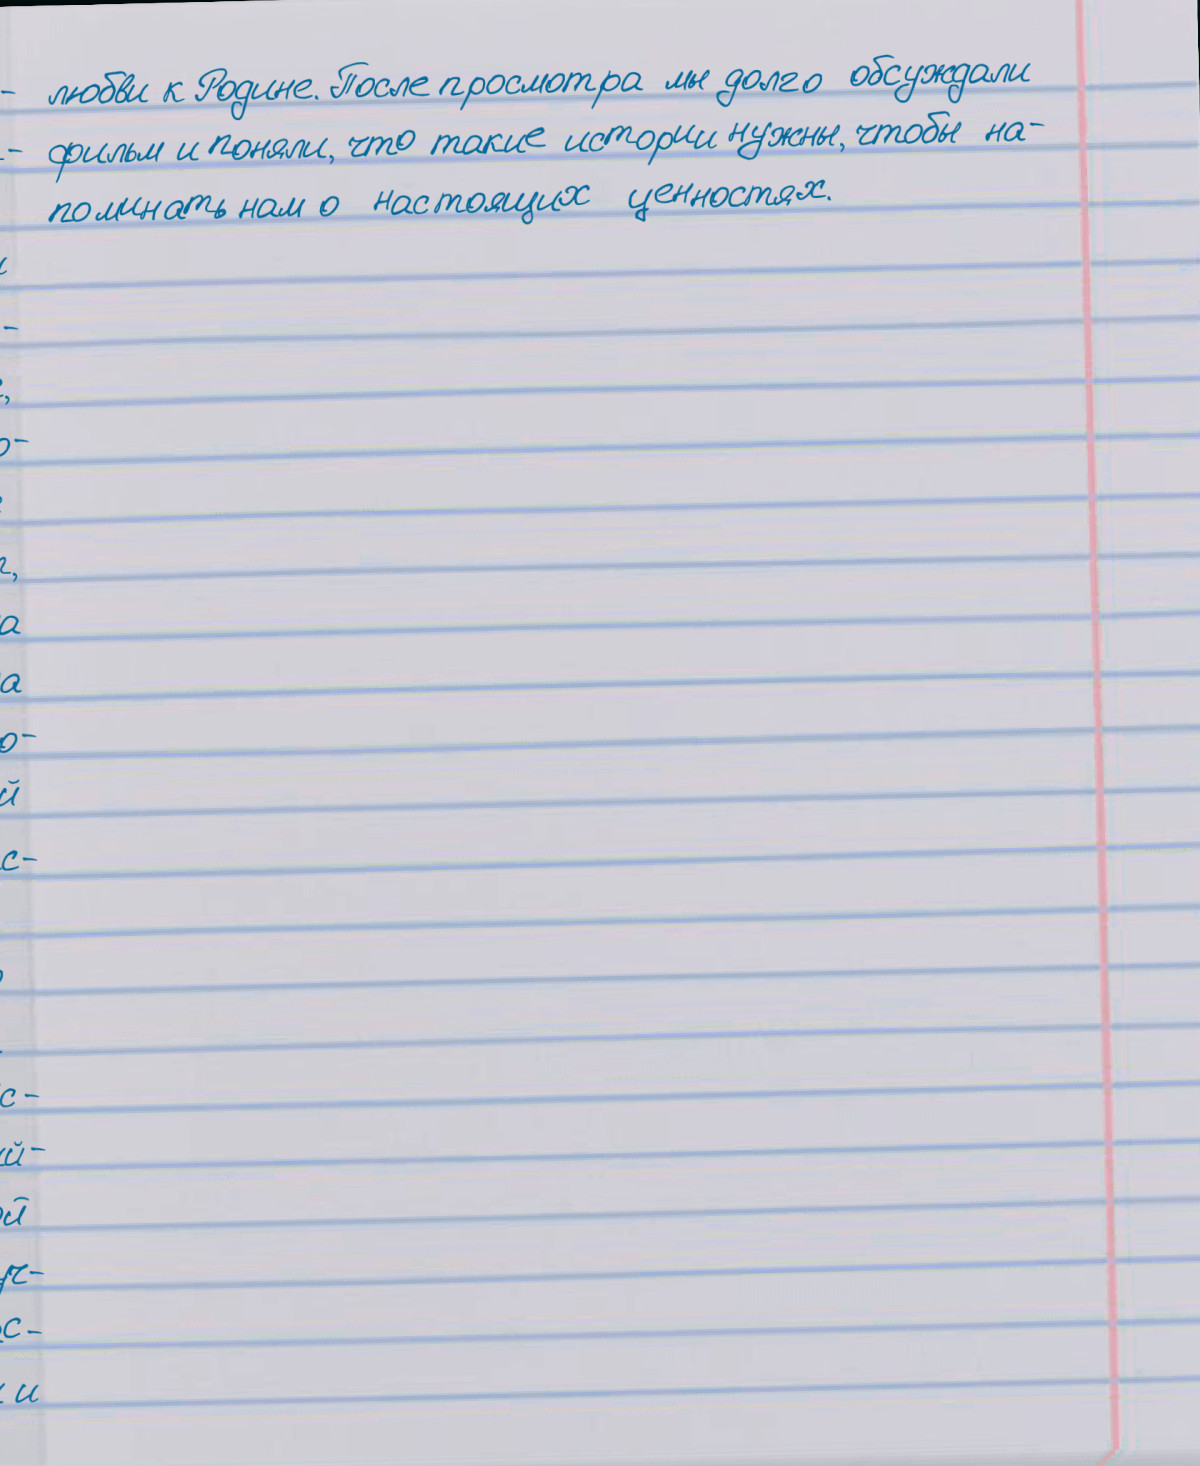 любви к Родине. После просмотра мы долго обсуждали
фильм и поняли, что такие истории нужны, чтобы на-
поминать нам о настоящих ценностях.